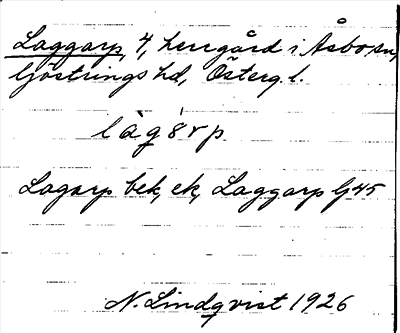 Laggarp, 4, herrgård i Åsbo sn,
Göstrings hd, Österg. l.
Lagarp bek, ek, Laggarp G 45
N. Lindqvist 1926